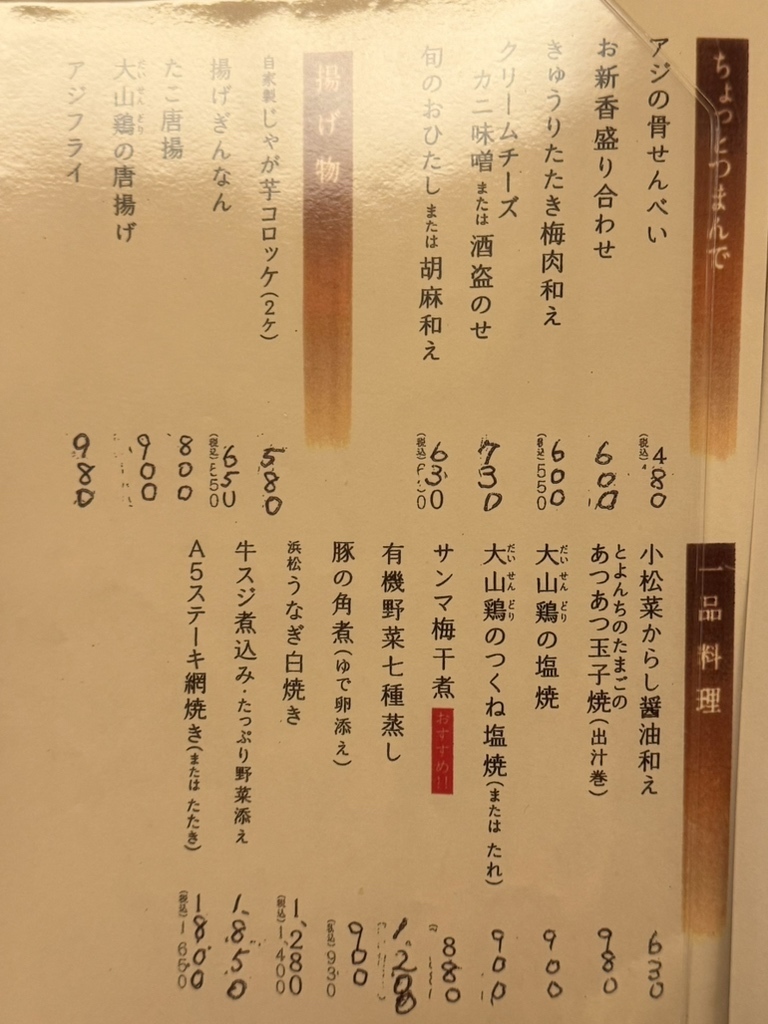 ちょっとつまんで
アジの骨せんべい
480
お新香盛り合わせ
600
きゅうりたたき梅肉和え
600
クリームチーズ
カニ味噌または酒盗のせ
730
旬のおひたしまたは胡麻和え
630
揚げ物
自家製じゃが芋コロッケ(2ケ)
580
揚げぎんなん
650
たこ唐揚
800
大山鶏の唐揚げ
だいせんどり
900
アジフライ
980
一品料理
小松菜からし醤油和え
630
とよんちのたまごの
あつあつ玉子焼(出汁巻)
980
大山鶏の塩焼
だいせんどり
900
大山鶏のつくね塩焼(または たれ)
だいせんどり
900
サンマ梅干煮 おすすめ!!
880
有機野菜七種蒸し
1,200
豚の角煮(ゆで卵添え)
900
(税込)930
浜松うなぎ白焼き
1,280
(税込)1,400
牛スジ煮込み・たっぷり野菜添え
1,850
A5ステーキ網焼き(または たたき)
1800
(税込)1650